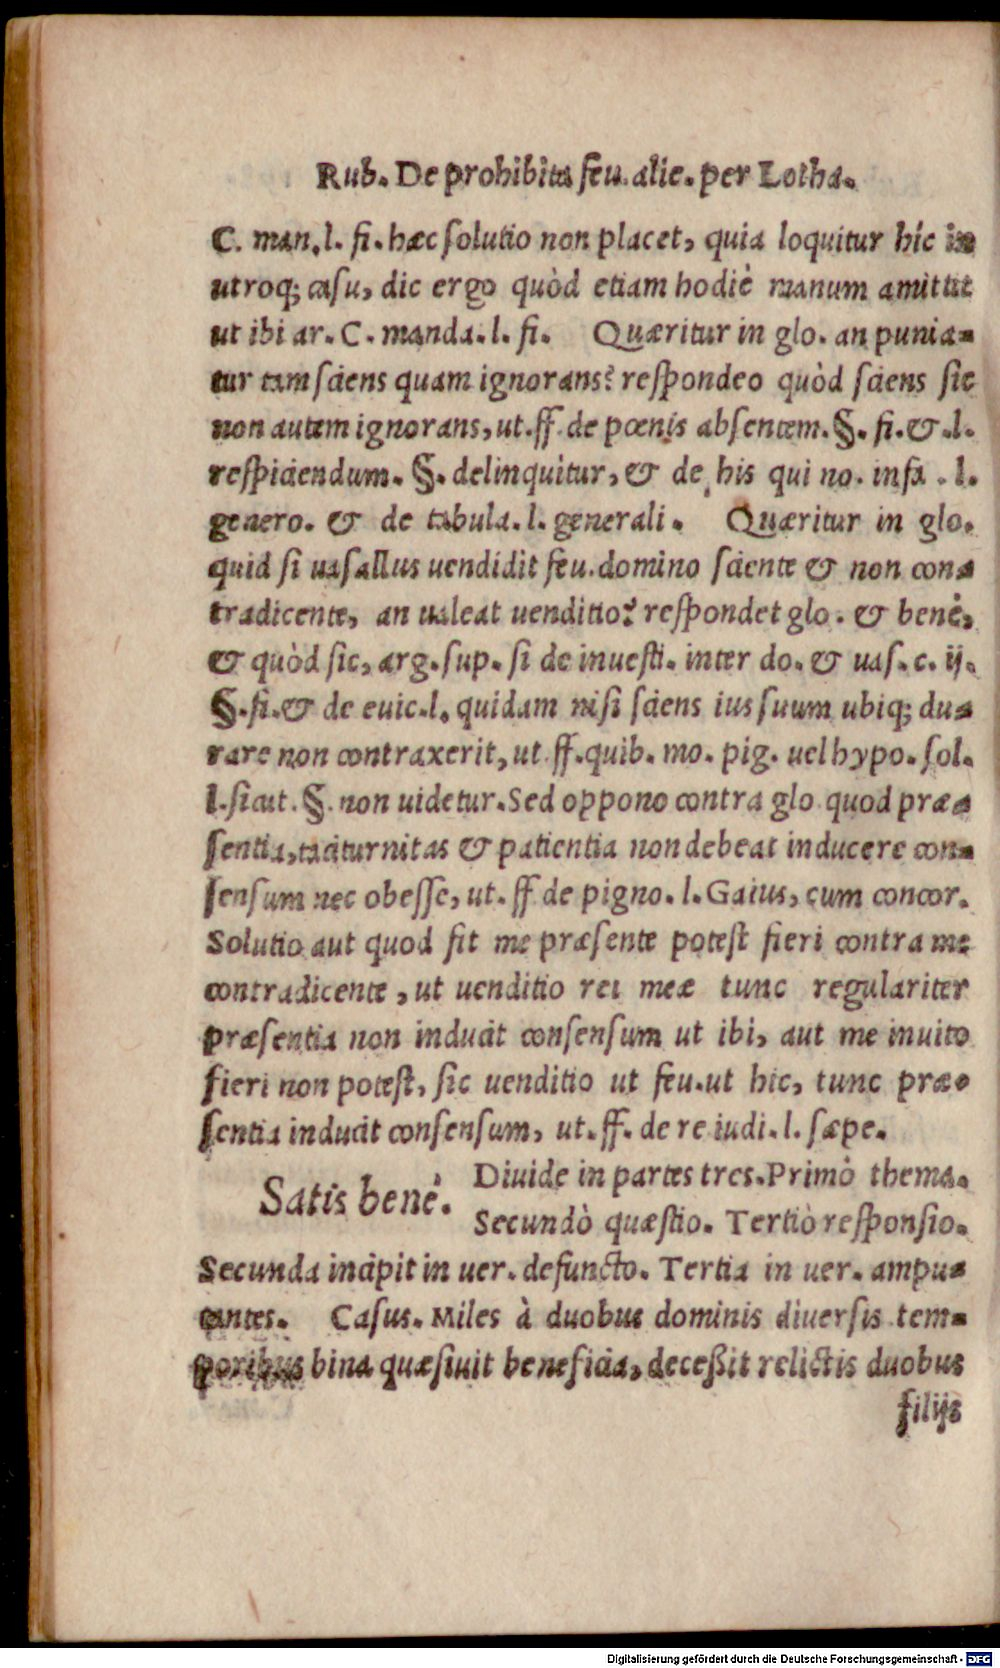 Rub. De prohibita feu. alie. per Lotha.
C. man. l. fi. hæc ſolutio non placet, quia loquitur híc in
utroq; caſu, dic ergo quòd etiam hodiè manum amittit
ut ibi ar. C. manda. l. fi. Quæritur in glo. an punia-
tur tam ſciens quam ignorans? reſpondeo quòd ſciens ſic
non autem ignorans, ut. ff. de pœnis abſentem. §. fi. & .l.
reſpiciendum. §. delinquitur, & de his qui no. infa . l.
genero. & de tabula. l. generali. Quæritur in glo.
quid ſi uaſallus uendidit feu. domino ſciente & non con-
tradicente, an ualeat uenditio? reſpondet glo. & benè,
& quòd ſic, arg. ſup. ſi de inueſti. inter do. & uaſ. c. ij.
§. fi. & de euic. l. quidam niſi ſciens ius ſuum ubiq; du-
rare non contraxerit, ut ff. quib. mo. pig. uel hypo. ſol.
l. ſicut. §. non uidetur. Sed oppono contra glo quod præ-
ſentia, taciturnitas & patientia non debeat inducere con-
ſenſum nec obeſſe, ut. ff de pigno. l. Gaius, cum concor.
Solutio aut quod fit me præſente poteſt fieri contra me
contradicente, ut uenditio rei meæ tunc regulariter
præſentia non inducit conſenſum ut ibi, aut me inuito
fieri non poteſt, ſic uenditio ut feu. ut hic, tunc præ-
ſentia inducit conſenſum, ut. ff. de re iudi. l. ſæpe.
Satis benè. Diuide in partes tres. Primò thema.
Secundò quæſtio. Tertiò reſponſio.
Secunda incipit in uer. defuncto. Tertia in uer. ampu-
tantes. Caſus. Miles à duobus dominis diuerſis tem-
poribus bina quæſiuit beneficia, deceßit relictis duobus
filijs
Digitalisierung gefördert durch die Deutsche Forschungsgemeinschaft - DFG